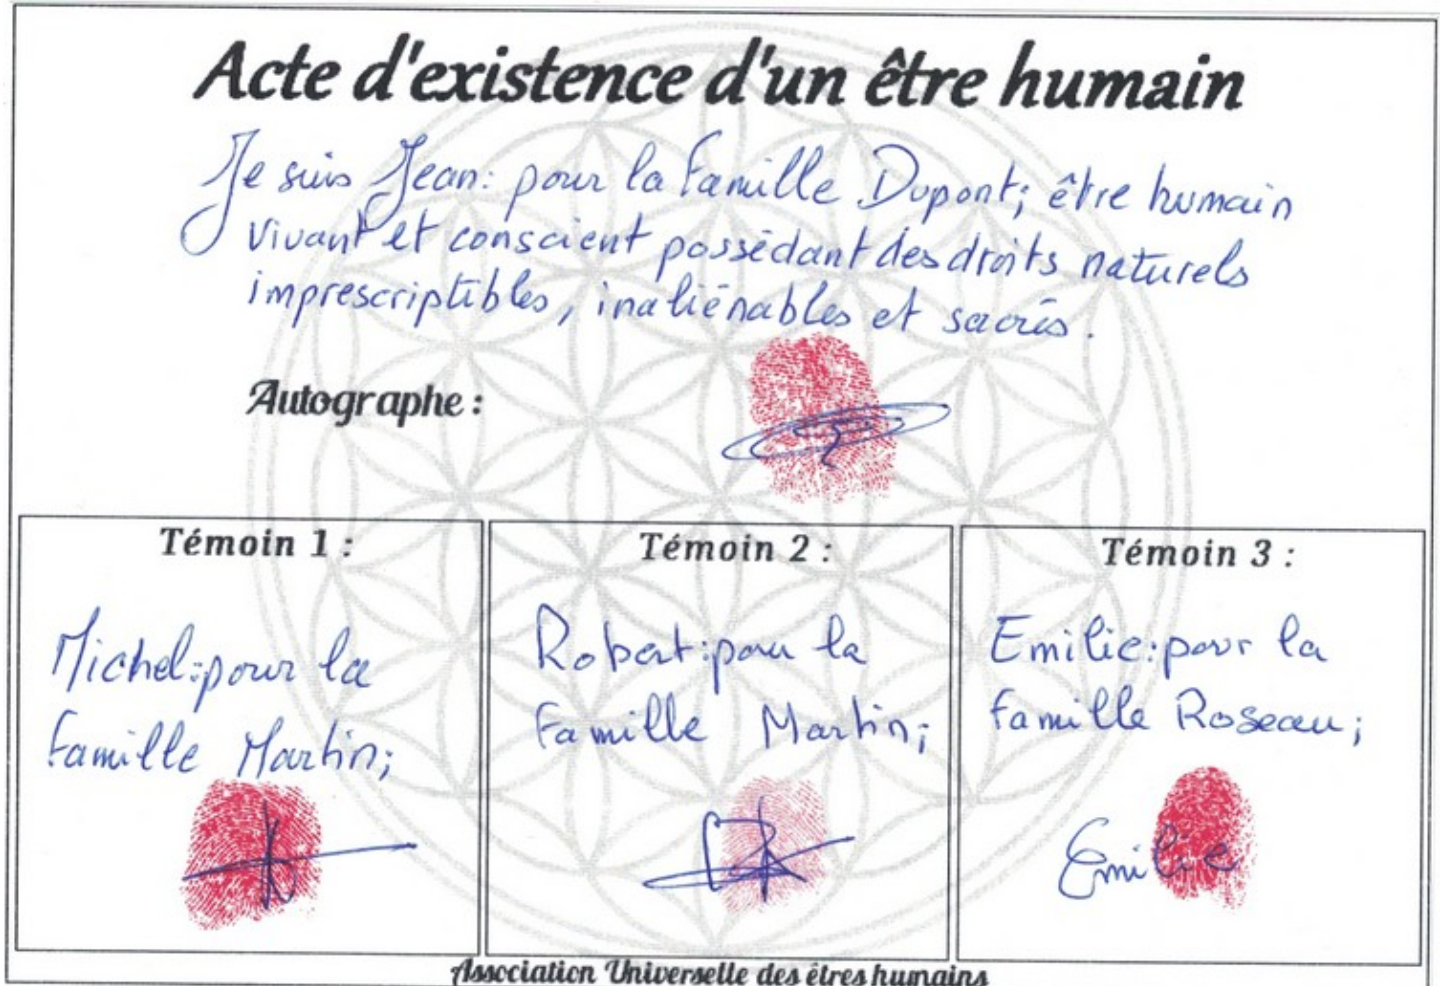 Acte d'existence d'un être humain
Je suis Jean: pour la famille Dupont; être humain
vivant et conscient possédant des droits naturels
imprescriptibles, inaliénables et sacrés.
Autographe :
Témoin 1 :
Michel:pour la
famille Martin;
Témoin 2 :
Robert:pour la
famille Martin;
Témoin 3 :
Emilie:pour la
famille Roseau;
Emilie
Association Universelle des êtres humains